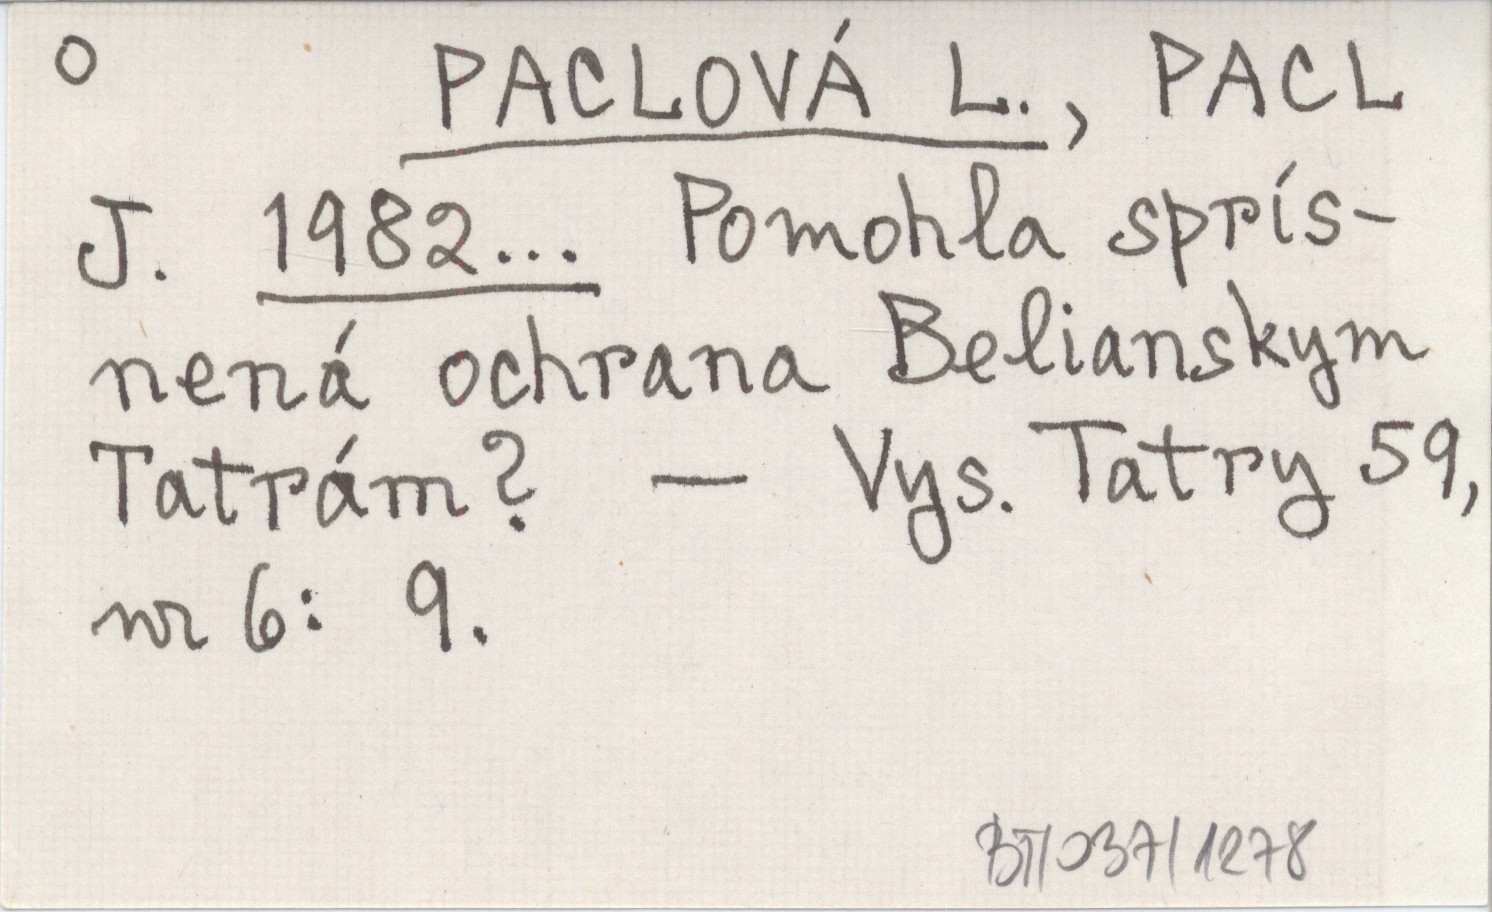 o PACLOVÁ L., PACL
J. 1982... Pomohla sprís-
nená ochrana Belianskym
Tatrám? — Vys. Tatry 59,
nr 6: 9.
BT/037/1278